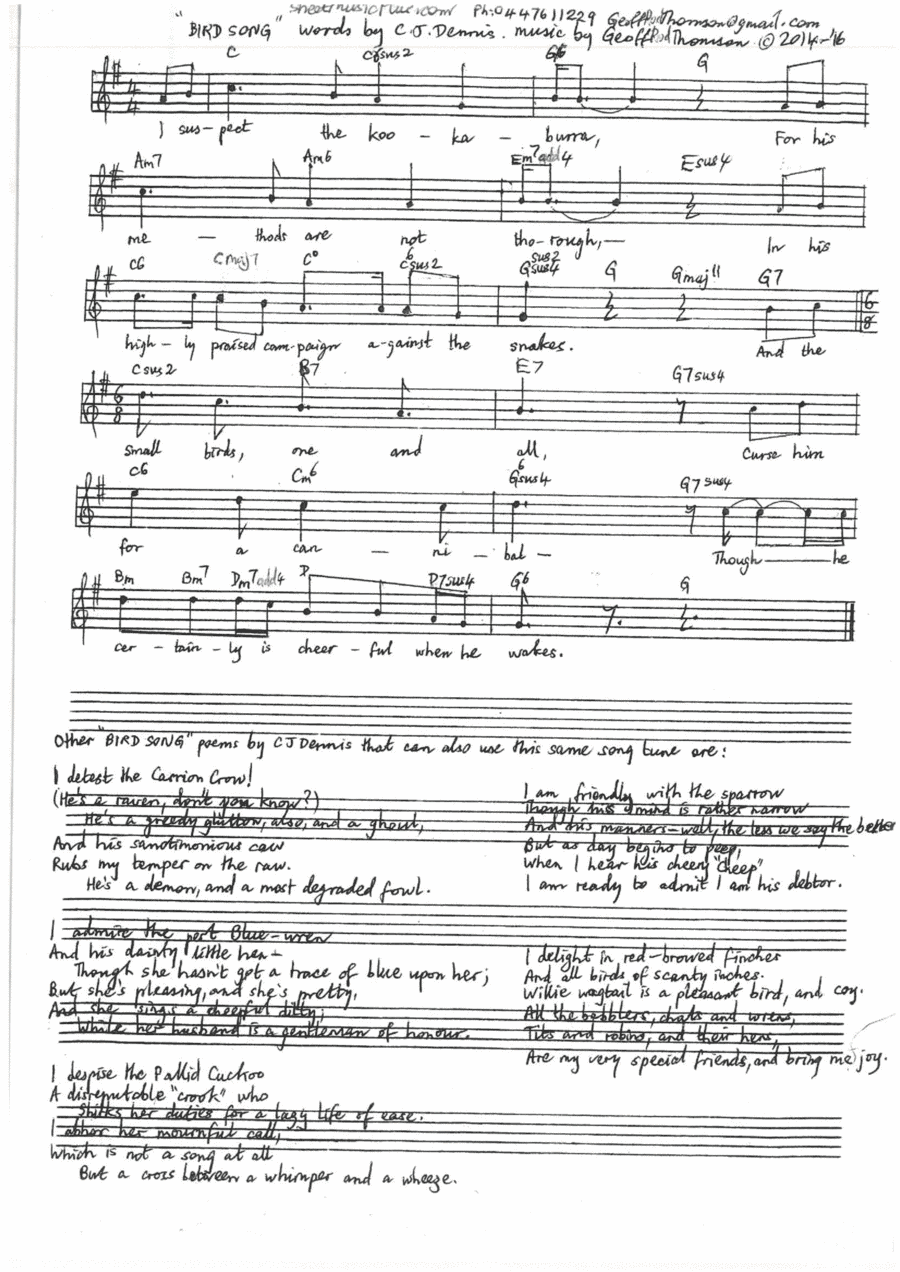 sheetmusic Ph:0447611229 GeoffRodThomson@gmail.com
"BIRD SONG" words by C.J.Dennis. music by GeoffRodThomson © 2014-'16
C C6sus2 G6 G
4 4
I sus-pect the koo - ka - burra, For his
Am7 Am6 Em7add4 Esus4
me - thods are not tho-rough,- In his
C6 Cmaj7 C° C6sus2 Gsus2sus4 G Gmaj11 G7
6 8
high-ly praised cam-paign a-gainst the snakes. And the
Csus2 B7 E7 G7sus4
6 8
small birds, one and all, Curse him
C6 Cm6 G6sus4 G7sus4
for a can - ni - bal - Though he
Bm Bm7 Dm7add4 D D7sus4 G6 G
cer - tain - ly is cheer - ful when he wakes.
Other "BIRD SONG" poems by CJ Dennis that can also use this same song tune are:
I detest the Carrion Crow!
(He's a raven, don't you know?)
He's a greedy glutton, also, and a ghoul,
And his sanctimonious caw
Rubs my temper on the raw.
He's a demon, and a most degraded fowl.
I am friendly with the sparrow
Though his mind is rather narrow
And his manners-well, the less we say the better
But as day begins to peep,
When I hear his cheery "cheep"
I am ready to admit I am his debtor.
I admire the pert Blue-wren
And his dainty little hen-
Though she hasn't got a trace of blue upon her;
But she's pleasing, and she's pretty,
And she sings a cheerful ditty;
While her husband is a gentleman of honour.
I delight in red-browed finches
And all birds of scanty inches.
Willie wagtail is a pleasant bird, and coy.
All the babblers, chats and wrens,
Tits and robins, and their hens,
Are my very special friends, and bring me joy.
I despise the Pallid Cuckoo
A disreputable "crook" who
Shirks her duties for a lazy life of ease.
I abhor her mournful call,
Which is not a song at all
But a cross between a whimper and a wheeze.